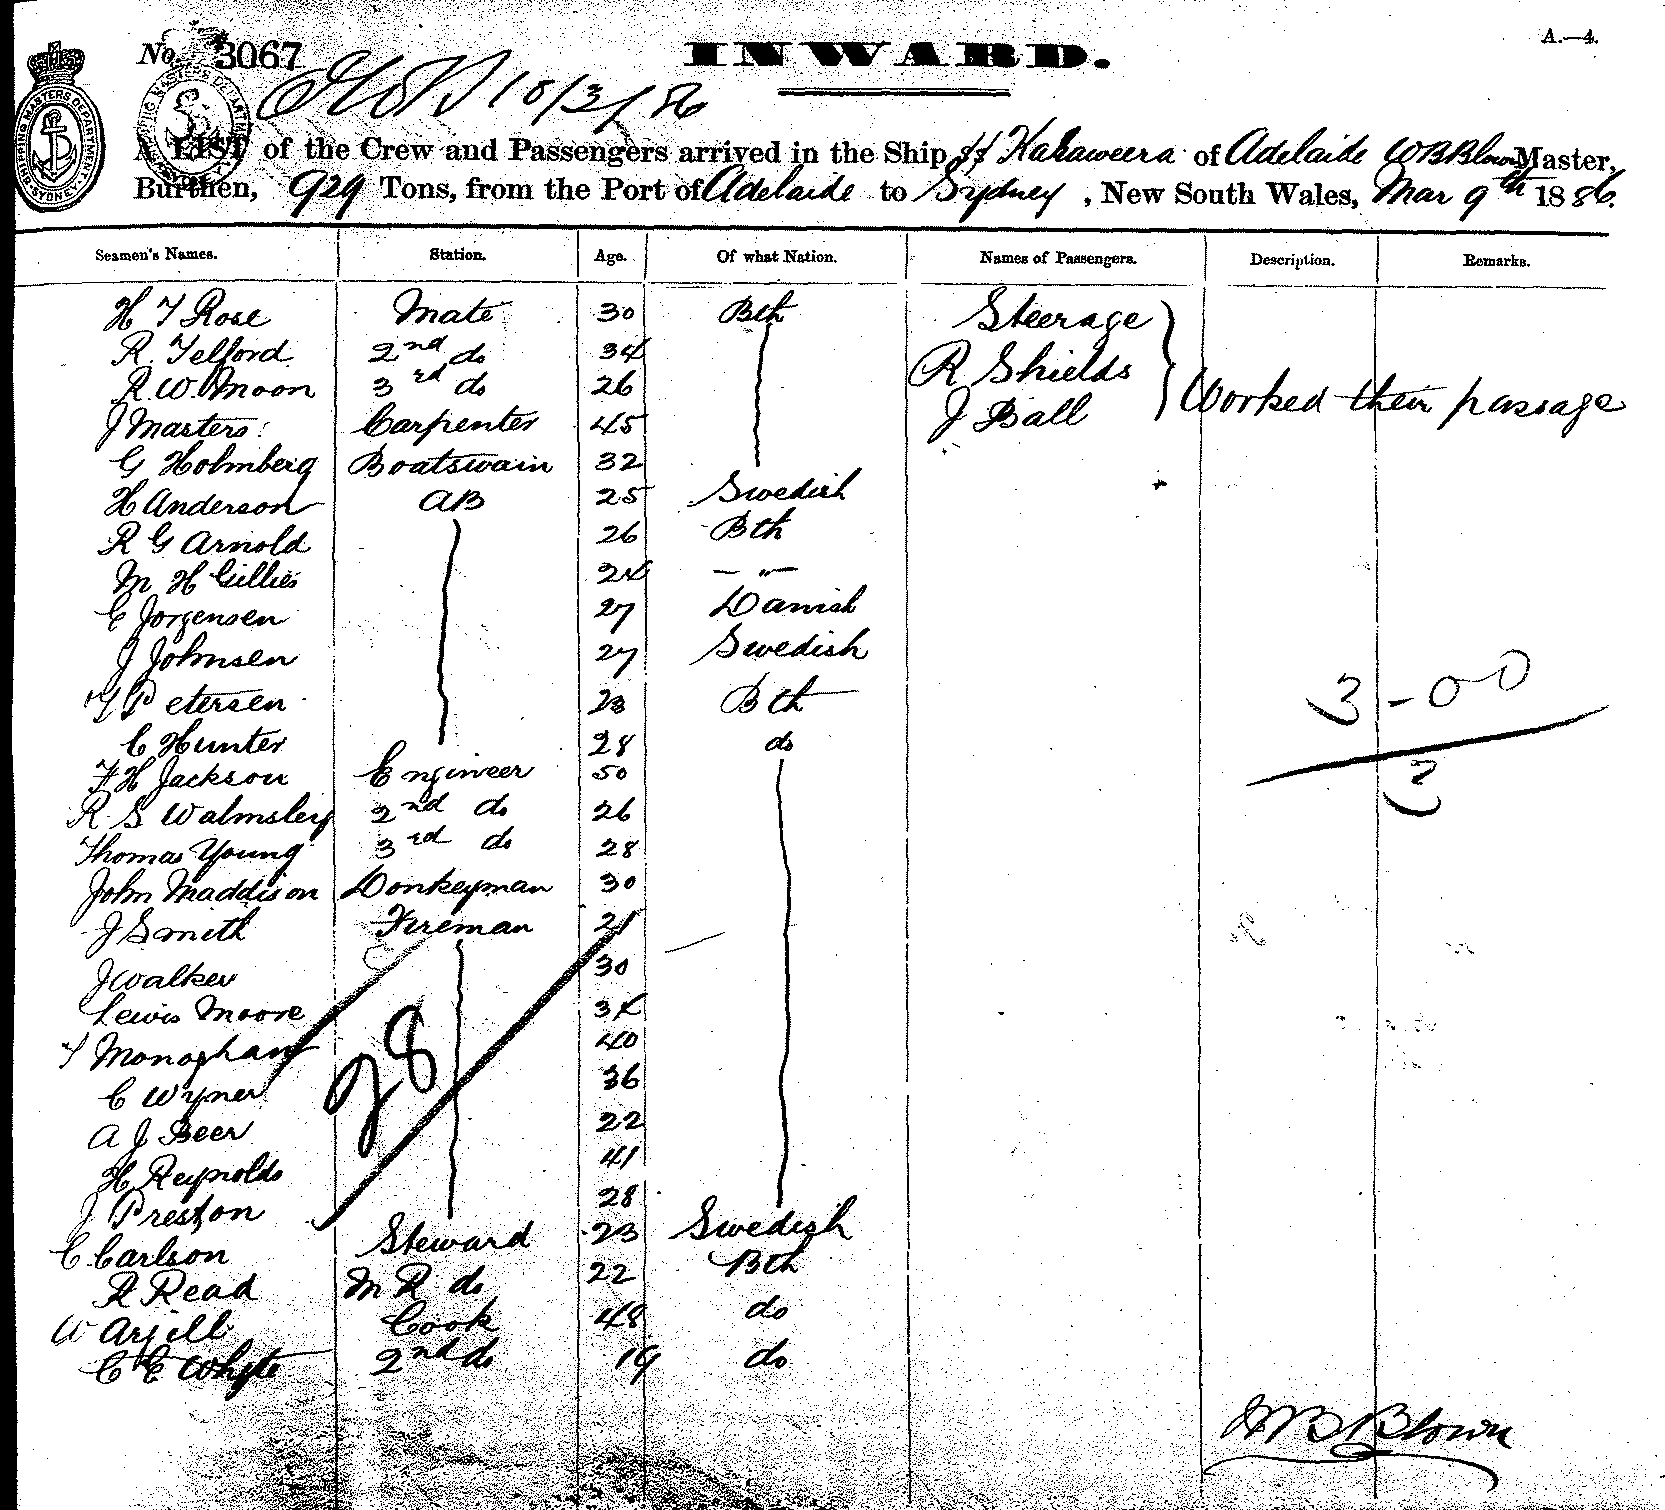 No. 3067
INWARD.
A.—4.
10/3/86
A LIST of the Crew and Passengers arrived in the Ship SS Kahaweera of Adelaide WB Blown Master,
Burthen, 929 Tons, from the Port of Adelaide to Sydney, New South Wales, Mar 9th 1886.
Seamen's Names. Station. Age. Of what Nation. Names of Passengers. Description. Remarks.
H T Rose Mate 30 Bth Steerage
R. Telford 2nd do 34 R Shields
R. W. Moon 3rd do 26 Worked their passage
J Masters Carpenter 45 J Ball
G Holmberg Boatswain 32
H Anderson AB 25 Swedish
R G Arnold 26 Bth
M H Gillies 24 — " —
C Jorgensen 27 Danish
J Johnsen 27 Swedish
P Petersen 23 Bth
C Hunter 28 do
F H Jackson Engineer 50
R S Walmsley 2nd do 26
Thomas Young 3rd do 28
John Maddison Donkeyman 30
J Smith Fireman 21
J Walker 30
Lewis Moore 34
T Monaghan 40
C Wyner 36
A J Beer 22
H Reynolds 41
J Preston 28
C Carlson Steward 23 Swedish
R Read M R do 22 Bth
W Argill Cook 48 do
C E Whyte 2nd do 19 do
28
3-00
3
WB Blown